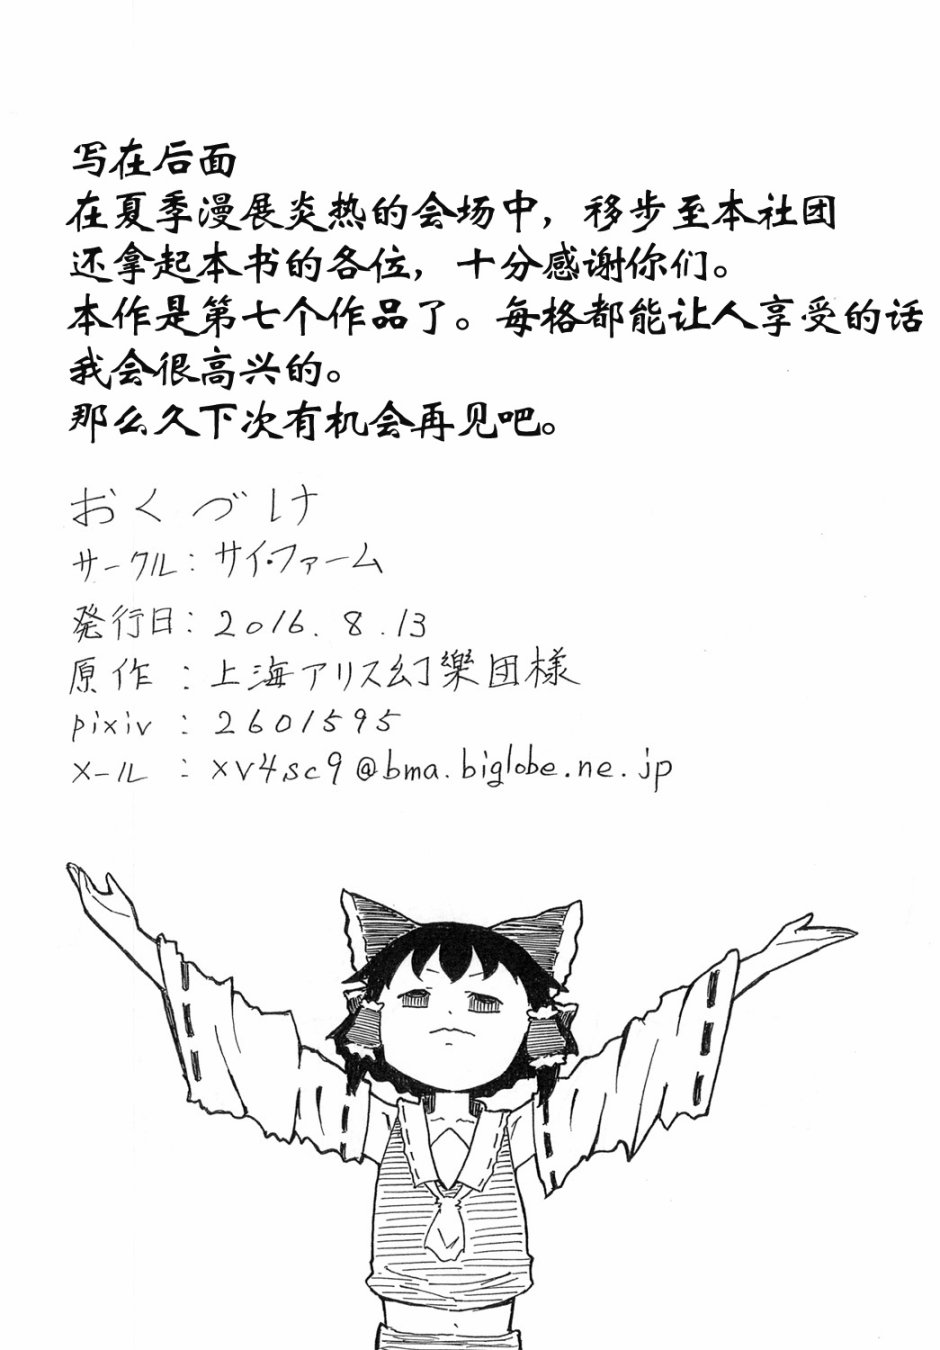 写在后面
在夏季漫展炎热的会场中，移步至本社团
还拿起本书的各位，十分感谢你们。
本作是第七个作品了。每格都能让人享受的话
我会很高兴的。
那么久下次有机会再见吧。
おくづけ
サークル：サイ・ファーム
発行日：2016.8.13
原作：上海アリス幻樂団様
pixiv：2601595
メール：xv4sc9@bma.biglobe.ne.jp